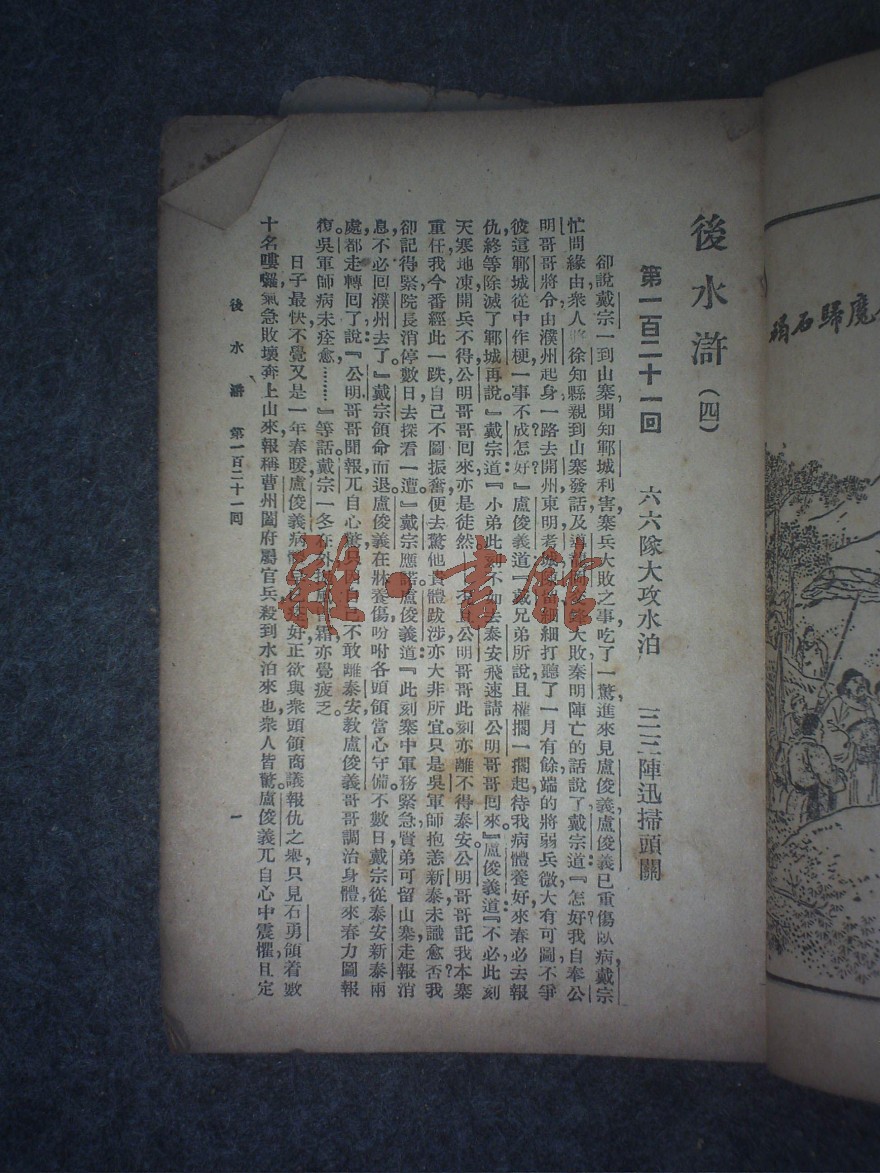 後水滸（四）
第一百二十一回　六六隊大攻水泊　三三陣迅掃頭關
卻說戴宗一到山寨，聞知鄆城利害，寨兵大敗之事，吃了一驚，進來見盧俊義，盧俊義已重傷臥病，戴宗
忙問緣由，衆人將徐知縣親到山寨發話，及大敗秦明陣亡的話說了，戴宗道：『怎好？我自奉公
明哥哥將令，由濮州起身，一路去開州東明考細打聽了一月有餘，端的將弱兵微，大有可圖，不爭
彼這鄆城從中作梗，一事不成，怎好？』盧俊義道：『戴兄弟所說，且權擱一擱起，待我病體養好，來春必去報
仇，終等除滅了鄆城再說。』戴宗道：『小弟此刻不如去泰安飛速請公明哥哥回來。』盧俊義道：『不必，此刻
天寒地凍，開兵不得，公明哥哥回來，亦是徒然，且公明哥哥此刻亦離不得泰安，公明哥哥託我本寨
重任，我今番經此一跌，自己不圖振奮，便去驚他，貴體跋涉，亦大非所宜，只是吳軍師抱恙新泰，未識愈否？我
卻記得緊，院長消停數日，去探看一遭。』戴宗應諾。盧俊義道：『此刻寨中軍務緊急，賢弟可留山寨走報消
息，不必回濮州去了。』戴宗領命而退，盧俊義在牀養傷，吩咐各頭領當心守備，不數日，戴宗從泰安新泰兩
處都走轉回了，說『公明哥哥聞報，兀自心驚，只不敢離泰安，教盧俊義哥哥調治身體，來春力圖報
復。吳軍師病未痊愈……』等話，戴宗一冬在外霜，亦覺疲乏。
日子最快，不覺又是一年春暖，盧俊義病好，正欲與衆頭領商議報仇之舉，只見石勇領着數
十名嘍囉，氣急敗壞，奔上山來，報稱曹州闔府屬官兵殺到水泊來也，衆人皆驚，盧俊義兀自心中震懼，且定
後水滸　第一百二十一回　一
魔歸石碣
雜·書館